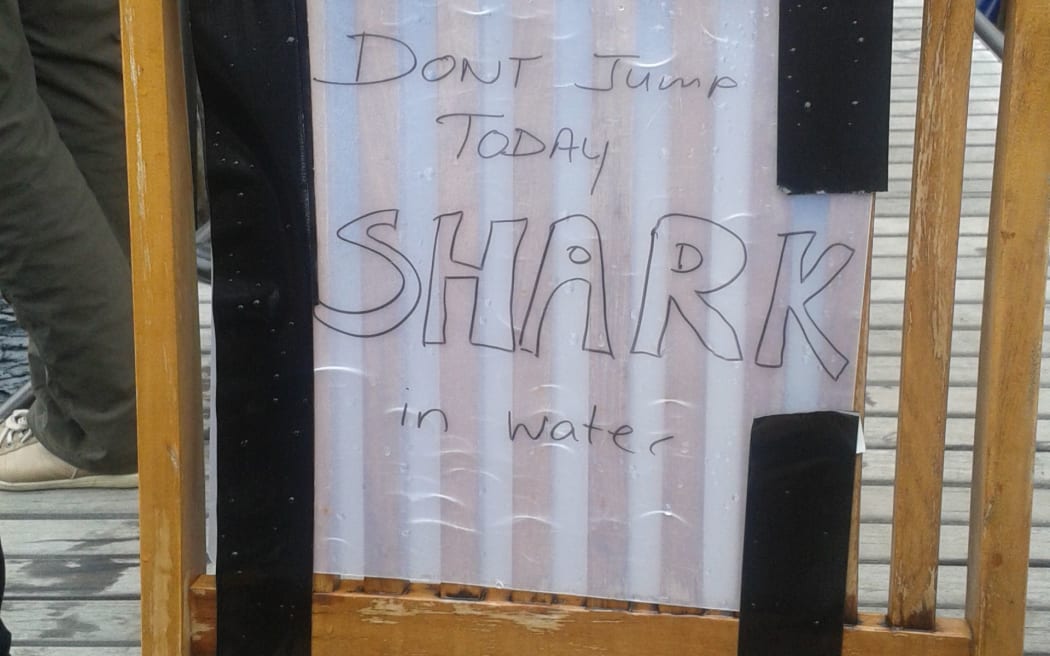 DONT Jump
TODAY
SHARK
in water